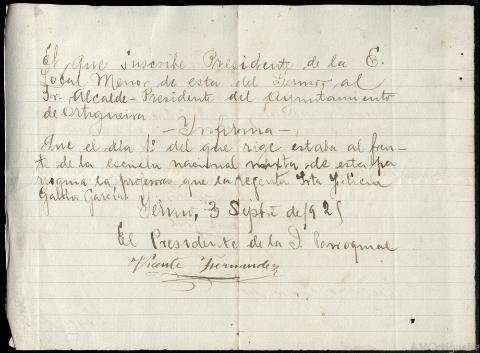 El que suscribe Presidente de la E.
Local Menor de esta del Yermo, al
Sr. Alcalde-Presidente del Ayuntamiento
de Ortigueira
-Informa-
Que el día 1º del que rige estaba al fren-
te de la escuela nacional mixta de esta pa
rroquia la profesora que la regenta Srta
García
Yermo, 3 Sptre de 1925
El Presidente de la J. Parroquial
Vicente Fernandez